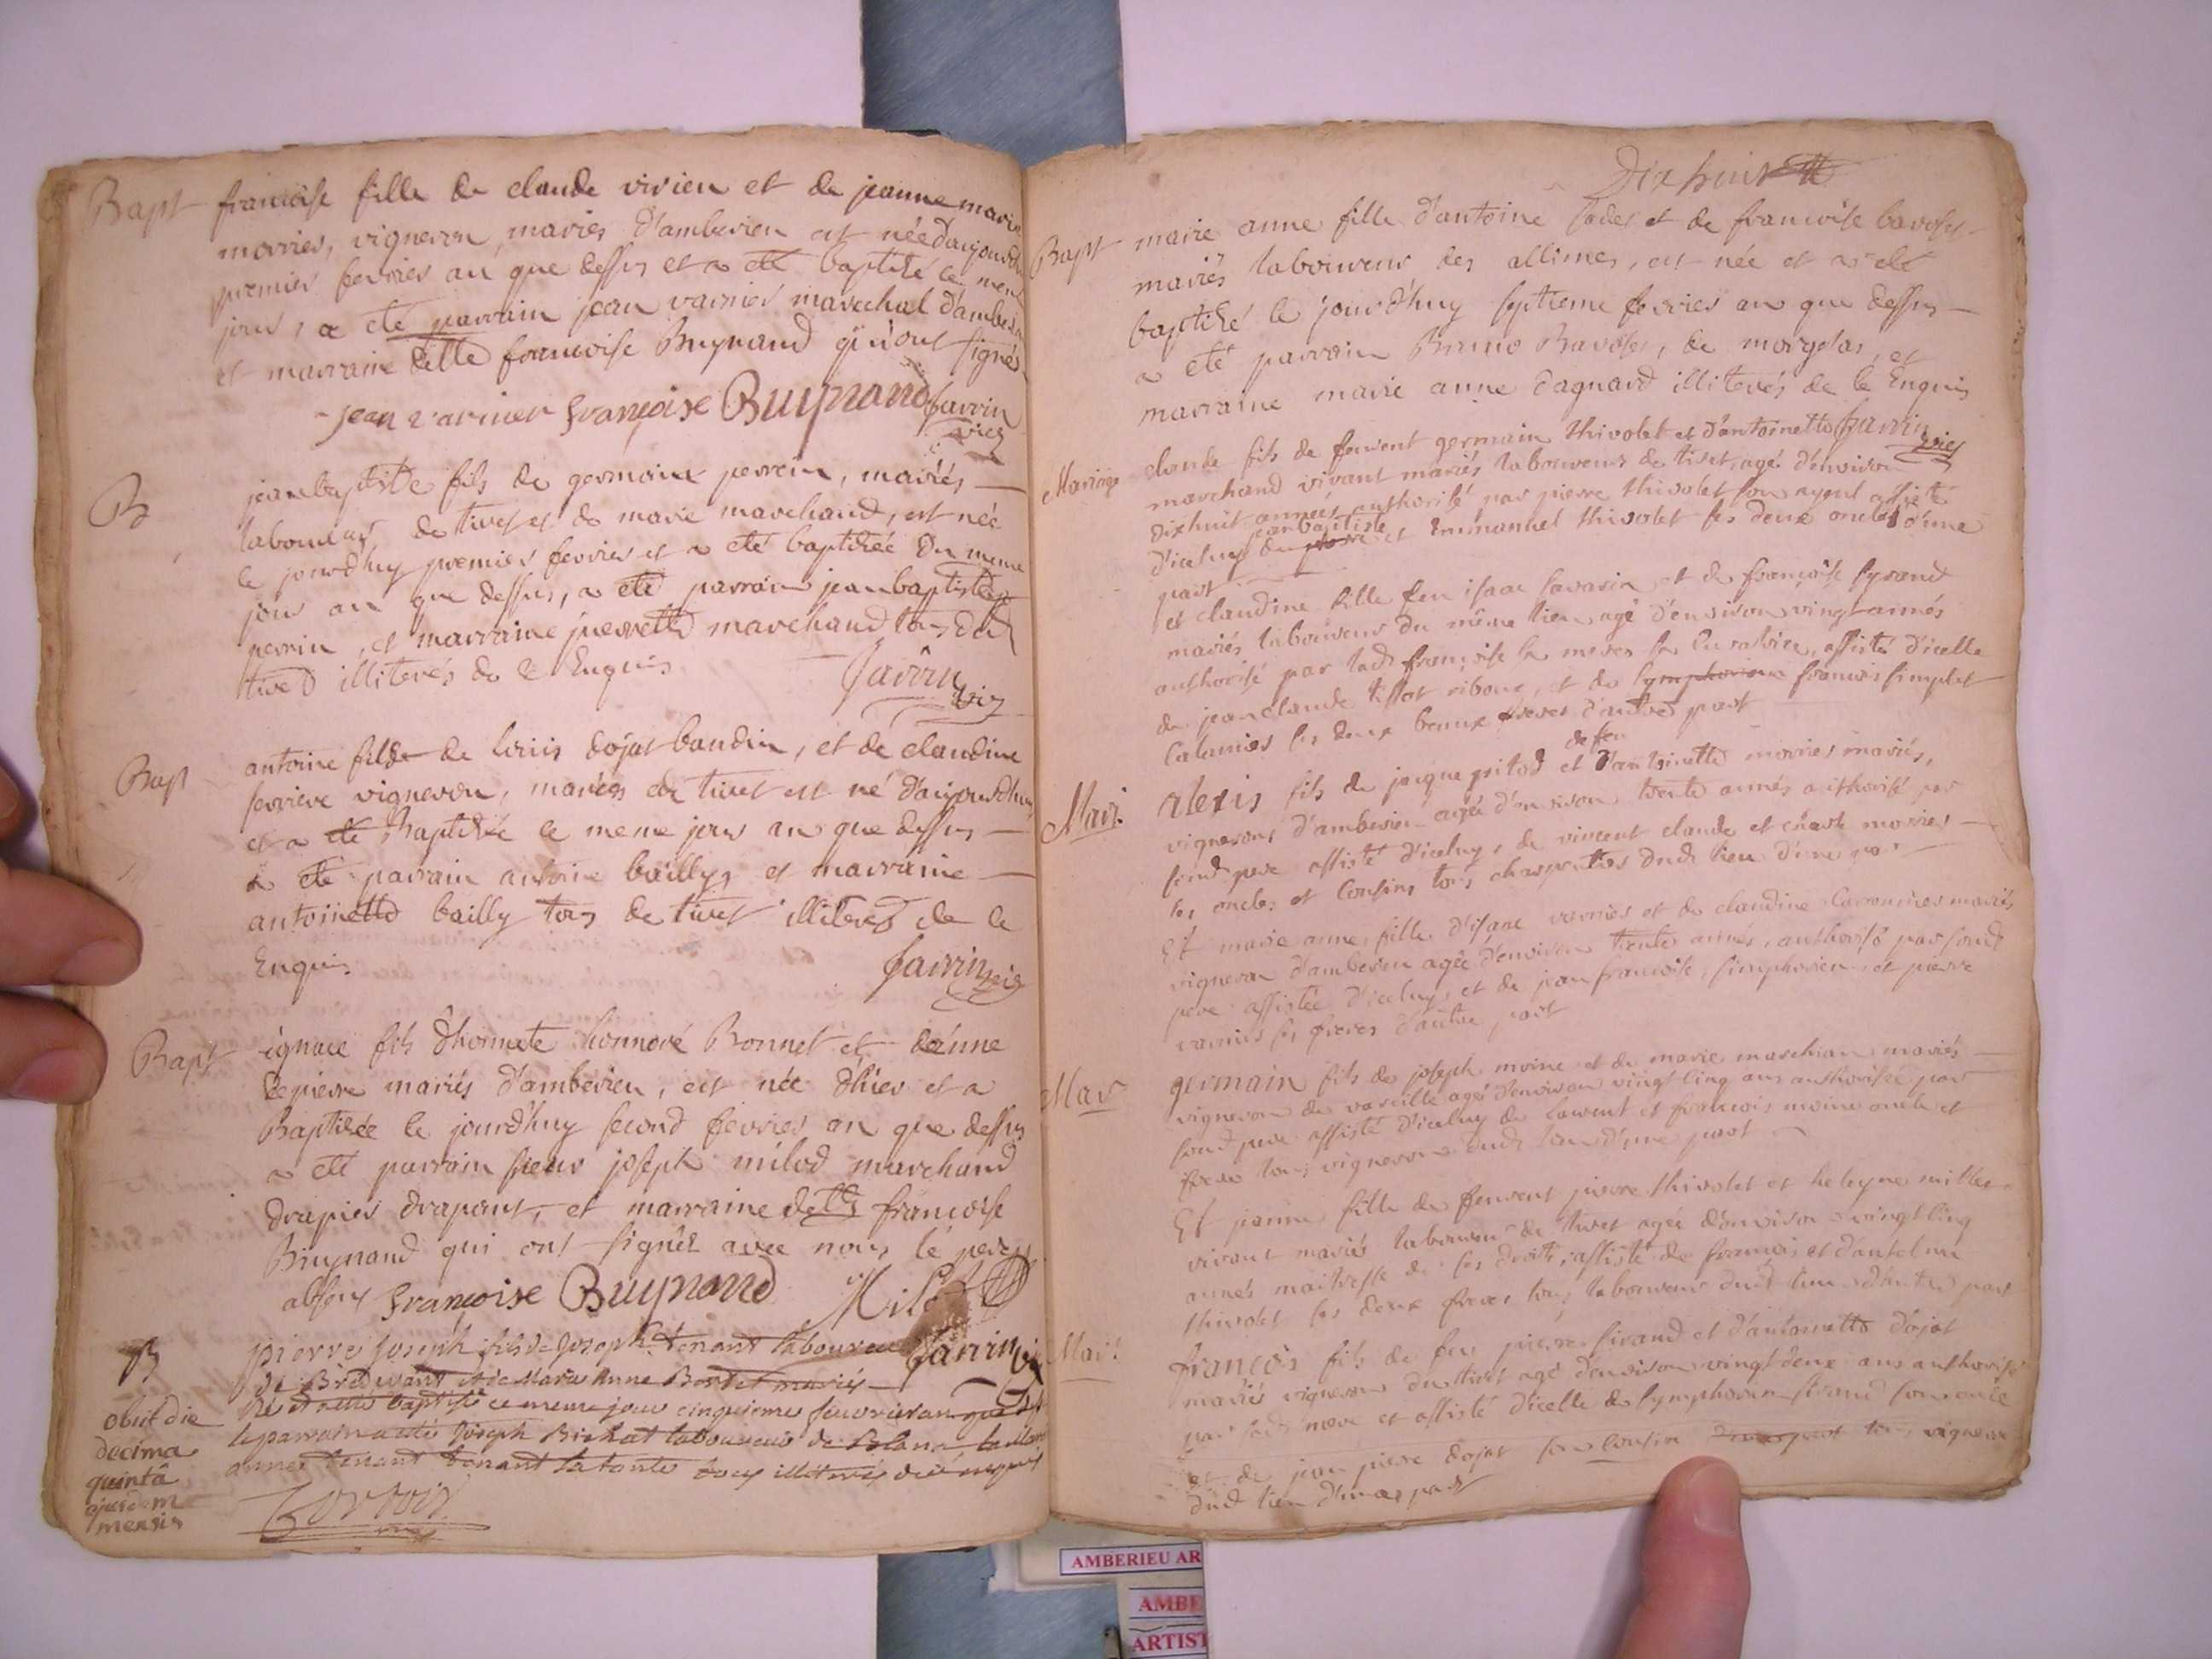 Bapt francoise fille de claude vivien et de jeanne marie
morrier, vigneron, mariés d'amberieu est née d'aujourdhuy
premier fevrier an que dessus et a eté baptisé le meme
jour, a eté parrain jean varnier marechal d'amberieu
et marraine delle francoise Buynand qui ont signés
jean varnier françoise Buynand Jarrin
vicr
B jeanbaptiste fils de germain perrein, mariés
laboureur de tiret et de marie marchand, est née
le jourdhuy premier fevrier et a eté baptisée du meme
jour an que dessus, a eté parrain jeanbaptiste
perrin, et marraine pierrette marchand tous dud
tiret illiterés de ce Enquis
Jarrin vicr
Bapt antoine fils de louis dojat baudin, et de claudine
ferriere vigneron, mariés de tiret est né d'aujourdhuy
et a eté Baptisée le meme jour an que dessus
a eté parrain antoine bailly, et marraine
antoinette bailly tous de tiret illiterés de ce
Enquis Jarrin vicr
Bapt ignace fils d'honnete honnoré Bonnet et d'anne
depierre mariés d'amberieu, est née d'hier et a
Baptisée le jourd'huy second fevrier an que dessus
a eté parrain sieur joseph milod marchand
drapier drapant, et marraine delle francoise
Buynand qui ont signés avec nous le pere
absent françoise Buynand Milod
Jarrin vicr
B pierre joseph fils de joseph tenant laboureur
de Bredevant et de Marie Anne Bordet mariés
né et a eté baptisé ce meme jour cinquieme fevrier an que dess
le parrain a eté joseph Bichat laboureur de
anne tenant tenant sa tante tous illitérés de ce enquis
obiit die
decima
quintâ
ejusdem
mensis
Dix huit
Bapt marie anne fille d'antoine et de francoise bavoset
mariés laboureur des allimes, est née et a eté
baptisé le jourd'huy septieme fevrier an que dessus
a eté parrain Bruno Bavoset, de morgelas, et
marraine marie anne dagnard illiterés de ce Enquis
Jarrin vicr
Mariage claude fils de feurent germain thivolet et d'antoinette
marchand vivant mariés laboureurs de tiret, agé d'environ
dixhuit années, authorisé par pierre thivolet son ayeul assisté
d'iceluy de jeanbaptiste et Emmanuel thivolet ses deux oncles d'une
part
et claudine fille feu isaac savarin et de françoise sirand
mariés laboureur du même lieu agé d'environ vingt années
authorisé par lade françoise sa mere sa curatrice, assisté d'icelle
de jean claude tissot ribout, et de francois simplet
calamier ses deux beaux freres d'autre part
Mari. alexis fils de jacque pitod et de feu d'antoinette morrier mariés,
vignerons d'amberieu agée d'environ trente années authorisé par
sond pere assisté d'iceluy, de vincent claude et morrier
ses oncles et cousins tous charpentier dud. lieu d'une part
Et marie anne fille d'isaac varnier et de claudine mariés
vigneron d'amberieu agée d'environ trente années, authorisé par sond
pere assistée d'iceluy, et de jean francoise, simphorien et pierre
varnier ses freres d'autre part
Mar germain fils de joseph moine et de marie marchian mariés
vigneron de vareille agé d'environ vingt cinq ans authorisée par
sond pere assisté d'iceluy de laurent et francois moine oncle et
frere tous vignerons dud. lieu d'une part
Et jeanne fille de feurent pierre thivolet et heleyne millet
vivant mariés laboureur de tiret agée d'environ vingt cinq
années maitresse de ses droits, assisté de francois et d'antelme
thivolet ses deux freres tous laboureurs dud lieu d'autre part
Mari: francois fils de feu pierre sirand et d'antoinette dojat
mariés vigneron du tiret agé d'environ vingt deux ans authorisé
par lad. mere et assisté d'icelle de symphorien sirand son oncle
et de jean pierre dojat son cousin tous vigneron
dud lieu d'une part
AMBERIEU AR
AMBE
ARTIST